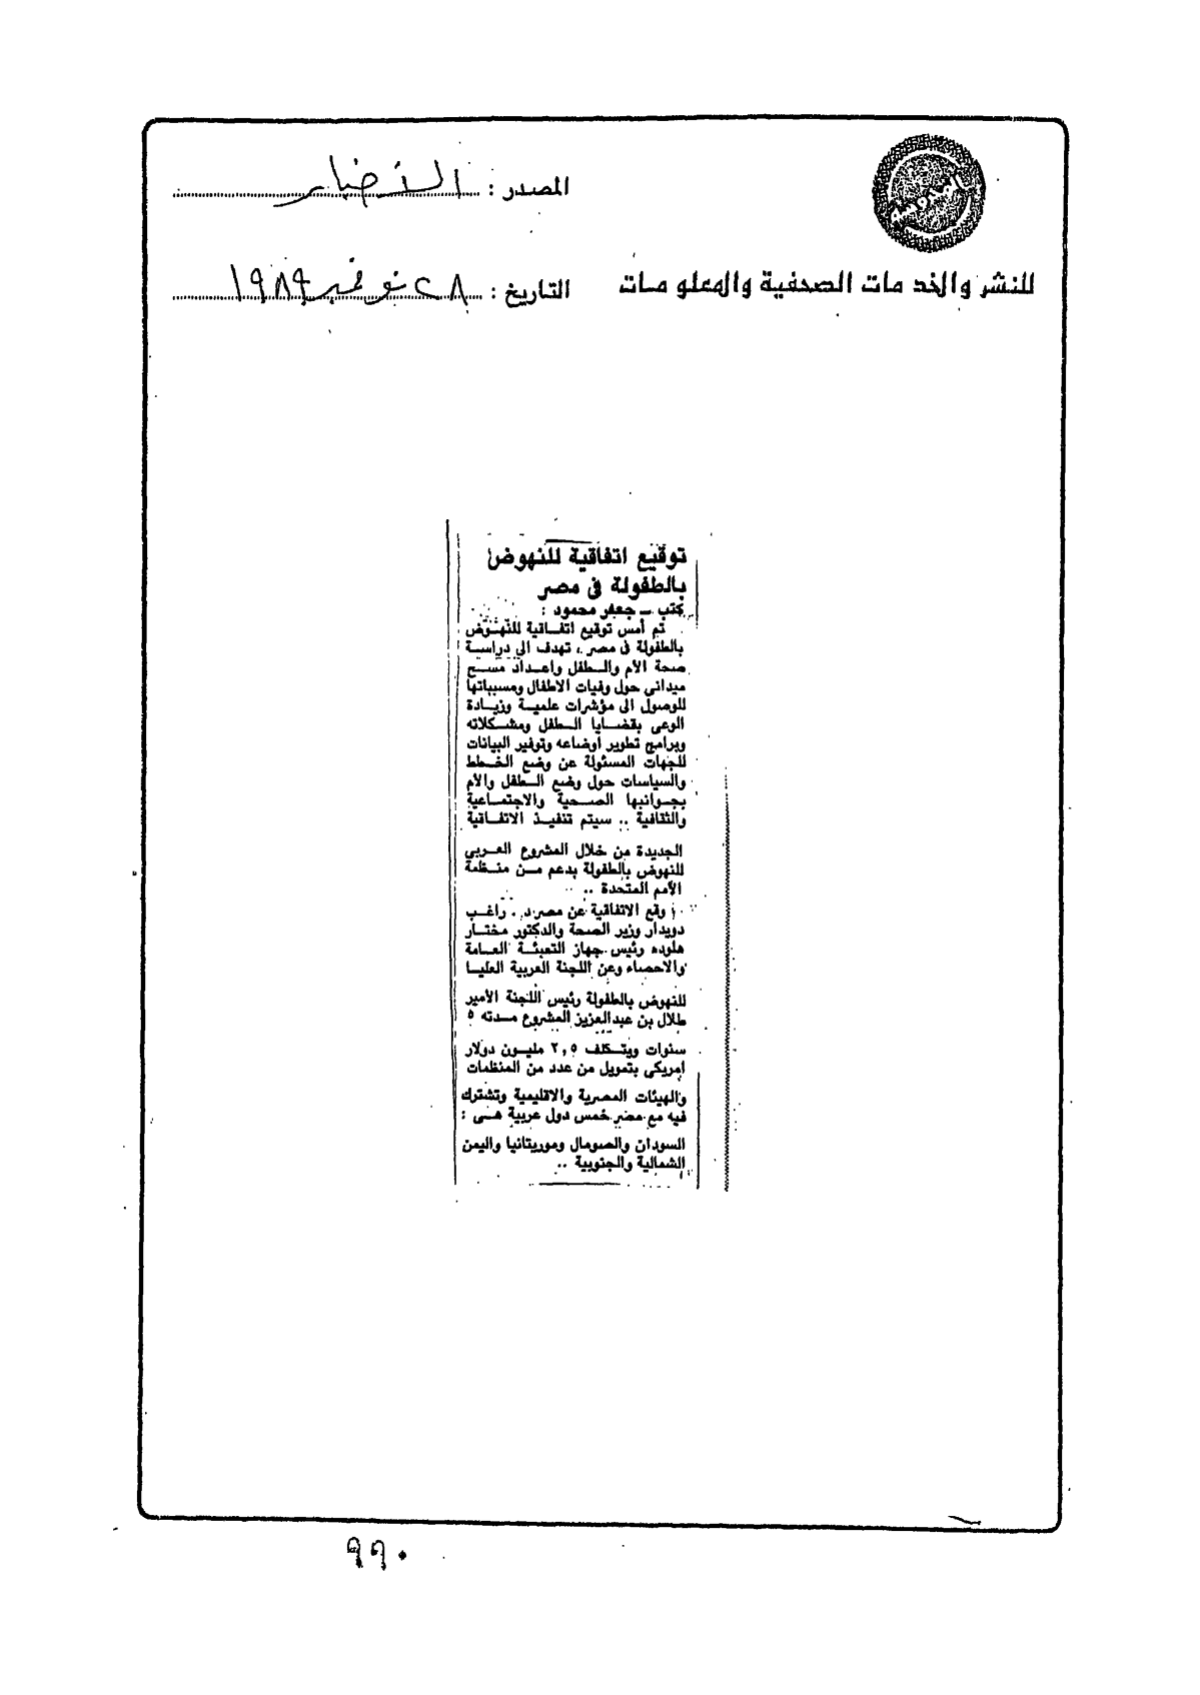 المصدر : الأخبار
للنشر والخدمات الصحفية والمعلومات
التاريخ : ٢٨ نوفمبر ١٩٨٩
توقيع اتفاقية للنهوض
بالطفولة فى مصر
كتب ـ جعفر محمود :
تم أمس توقيع اتفـاقية للنهـوض
بالطفولة فى مصر ، تهدف الى دراسـة
صحة الأم والـطفل واعـداد مسـح
ميدانى حول وفيات الاطفال ومسبباتها
للوصول الى مؤشرات علميـة وزيـادة
الوعى بقضـايا الـطفل ومشـكلاته
وبرامج تطوير أوضاعه وتوفير البيانات
للجهات المسئولة عن وضع الخـطط
والسياسات حول وضع الـطفل والأم
بجـوانبها الصـحية والاجتمـاعية
والثقافية .. سيتم تنفيـذ الاتفـاقية
الجديدة من خلال المشروع العـربى
للنهوض بالطفولة بدعم مـن منـظمة
الأمم المتحدة ..
وقع الاتفاقية عن مصر د . راغـب
دويدار وزير الصحة والدكتور مختـار
هلوده رئيس جهاز التعبئـة العـامة
والاحصاء وعن اللجنة العربية العليـا
للنهوض بالطفولة رئيس اللجنة الأمير
طلال بن عبدالعزيز المشروع مـدته ٥
سنوات ويتـكلف ٢,٥ مليـون دولار
امريكى بتمويل من عدد من المنظمات
والهيئات المصرية والاقليمية وتشترك
فيه مع مصر خمس دول عربية هـى :
السودان والصومال وموريتانيا واليمن
الشمالية والجنوبية ..